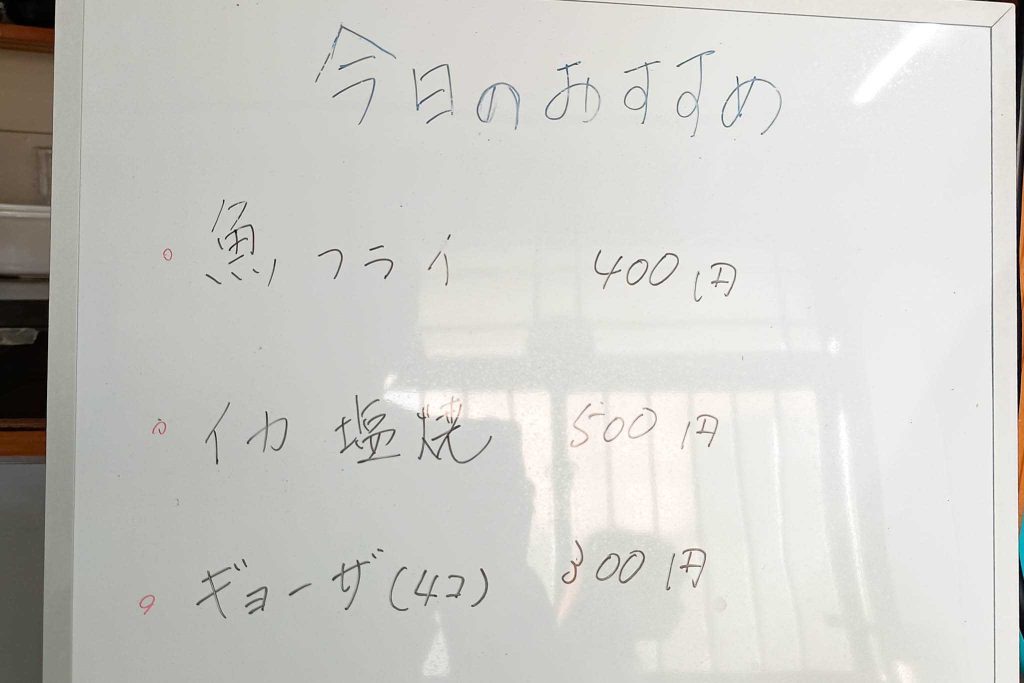 今日のおすすめ
○ 魚フライ 400円
○ イカ 塩焼 500円
○ ギョーザ(4コ) 300円